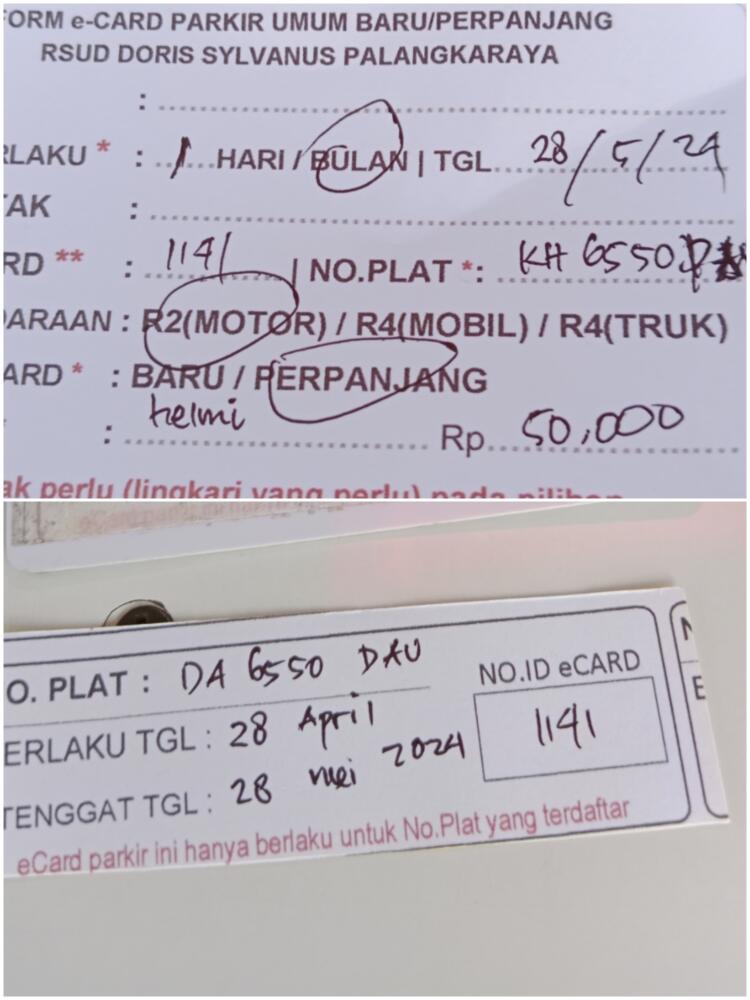 FORM e-CARD PARKIR UMUM BARU/PERPANJANG
RSUD DORIS SYLVANUS PALANGKARAYA
:
RLAKU * : 1 HARI / BULAN | TGL 28/5/24
AK :
RD ** : 1141 | NO.PLAT *: KH 6550
DARAAN : R2(MOTOR) / R4(MOBIL) / R4(TRUK)
ARD * : BARU / PERPANJANG
: helmi Rp. 50,000
ak perlu (lingkari yang perlu) pada pilihan
O. PLAT : DA 6550 DAU
ERLAKU TGL : 28 April
TENGGAT TGL : 28 mei 2024
NO.ID eCARD
1141
eCard parkir ini hanya berlaku untuk No.Plat yang terdaftar